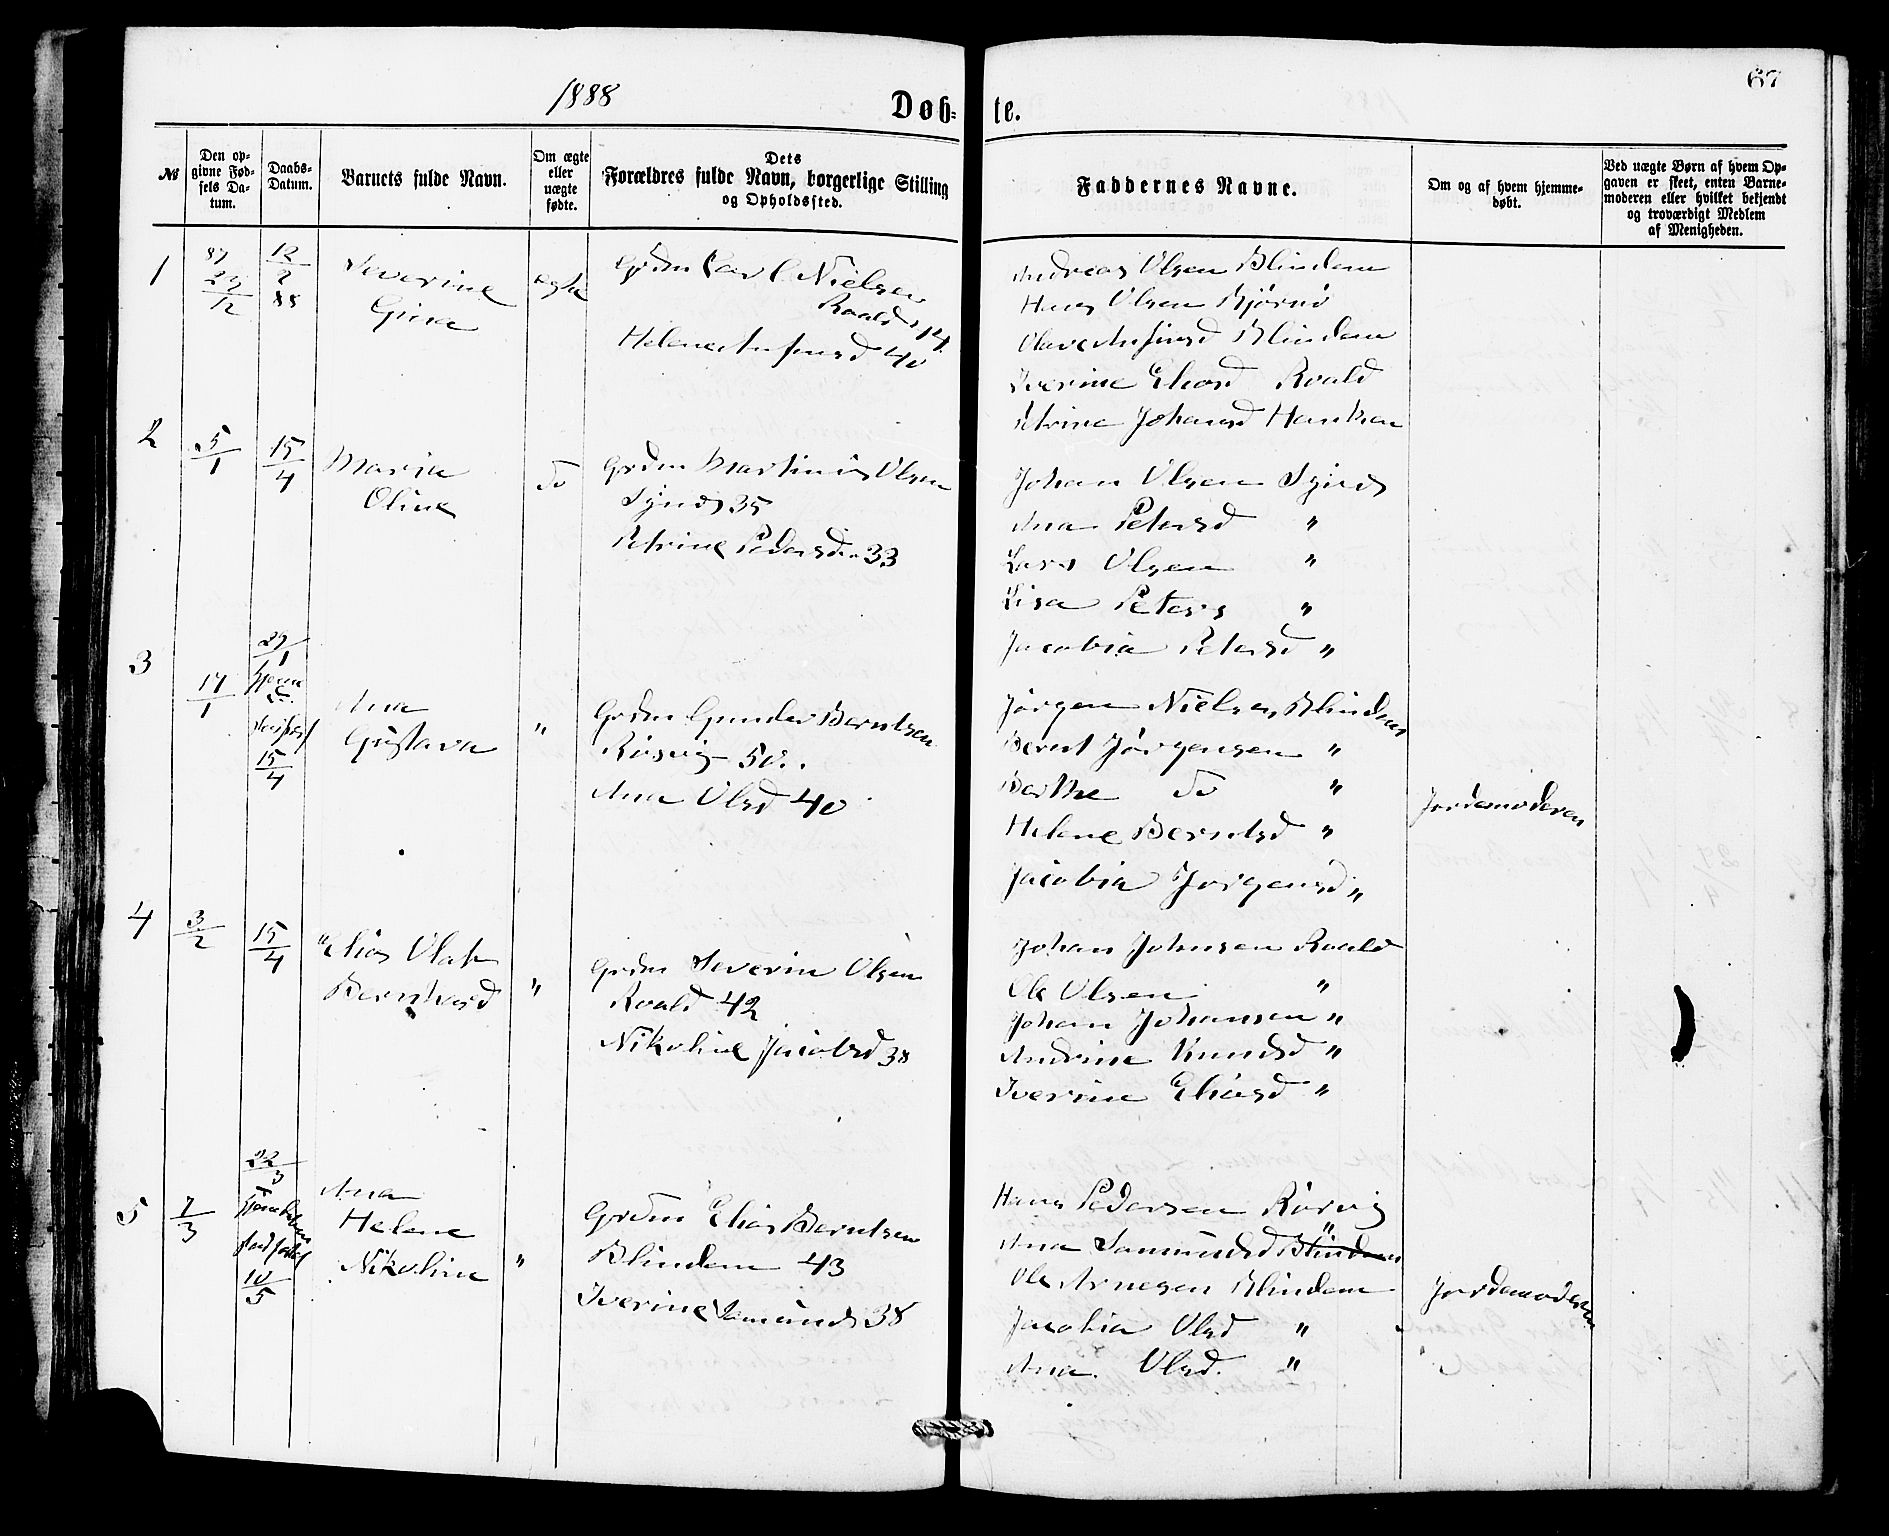 1888
Døb-te.
67
№
Den opgivne Fødsels Datum.
Daabs-Datum.
Barnets fulde Navn.
Om ægte eller uægte fødte.
Dets Forældres fulde Navn, borgerlige Stilling og Opholdssted.
Faddernes Navne.
Om og af hvem hjemmedøbt.
Ved uægte Børn af hvem Opgaven er skeet, enten Barnemoderen eller hvilket bekjendt og troværdigt Medlem af Menigheden.
1
87
29/12
12/2
88
Severine
Gina
ægte
Grdm Carl Nielsen
Roald
Helene 40
Andreas Olsen Blindem
Hans Olsen
Blindem
Iverine Eliasd Roald
Petrine Johansd
2
5/1
15/4
Maria
Oline
do
Grdm Martinus Olsen
Synes 35
Petrine Pedersd. 33
Johan Olsen Synes
Ana Petersd "
Lars Olsen "
Lisa Peters "
Jacobia Petersd "
3
17/1
29/1
15/4
Ana
Gustava
"
Grdm Gunder Berntsen
Rørvig 50.
Ana Olsd 40
Jørgen Nielsen Blindem
Bernt Jørgensen "
Berthe do "
Helene Berntsd "
Jacobia Jørgensd "
Jordemoderen
4
3/2
15/4
Elias Olaf
Bernhard
"
Grdm Severin Olsen
Roald 42
Nikoline Jacobsd 38
Johan Johnsen Roald
Ole Olsen "
Johan Johansen "
Andrine Knudsd "
Iverine Eliasd "
5
7/3
22/3
10/5
Ana
Helene
Nikoline
"
Grdm Elias Berntsen
Blindem 43
Iverine Samunds 38
Hans Pedersen Rørvig
Ana Samundsd Blindem "
Ole Arnesen Blindem
Jacobia Olsd "
Ana Olsd. "
Jordemoderen